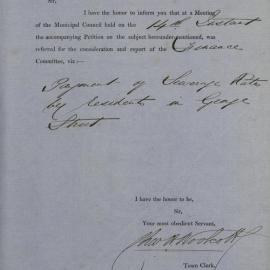 Sir,
I have the honor to inform you that at a Meeting
of the Municipal Council held on the 14th Instant
the accompanying Petition on the subject hereunder-mentioned, was
referred for the consideration and report of the Finance
Committee, viz:—
Payment of Sewerage Rates
by residents in George
Street
I have the honor to be,
Sir,
Your most obedient Servant,
Town Clerk.